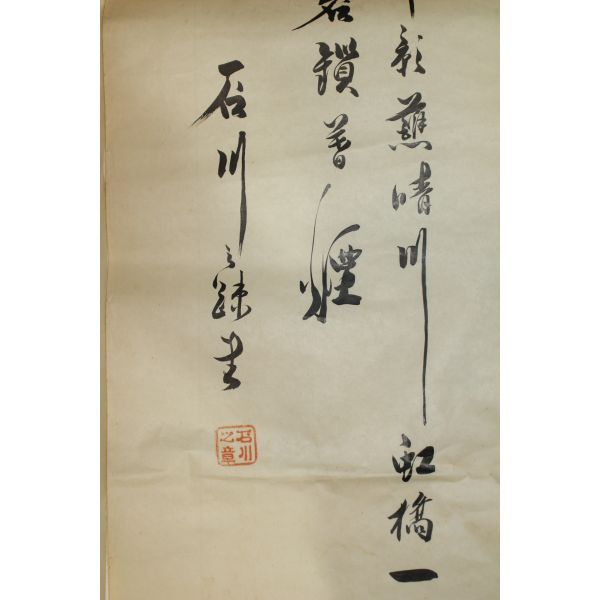 影蘸晴川虹橋一
鎖暮煙
石川之書
石川
之章